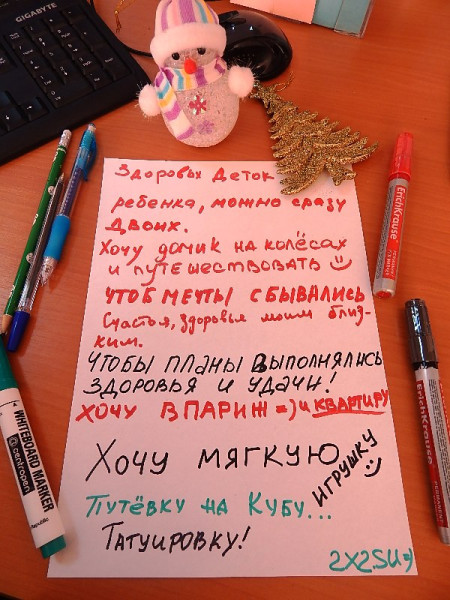 GIGABYTE
Здоровых деток
ребенка, можно сразу
двоих.
Хочу домик на колёсах
и путешествовать
ЧТОБ МЕЧТЫ СБЫВАЛИСЬ
Счастья, здоровья моим близ-
ким.
ЧТОБЫ ПЛАНЫ ВЫПОЛНЯЛИСЬ
ЗДОРОВЬЯ И УДАЧИ!
ХОЧУ В ПАРИЖ =) и КВАРТИРУ
ХОЧУ МЯГКУЮ
ИГРУШКУ
ПУТЁВКУ НА КУБУ...
ТАТУИРОВКУ!
2X2.SU =)
ErichKrause
ErichKrause
PERMANENT
WHITEBOARD MARKER
centropen